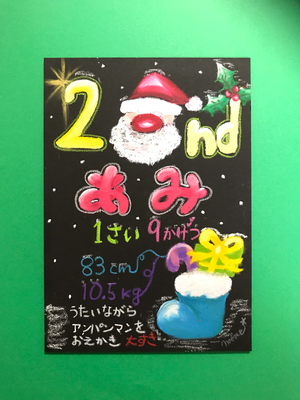 2nd
あみ
1さい 9かげつ
83cm
10.5kg
うたいながら
アンパンマンを
おえかき 大すき